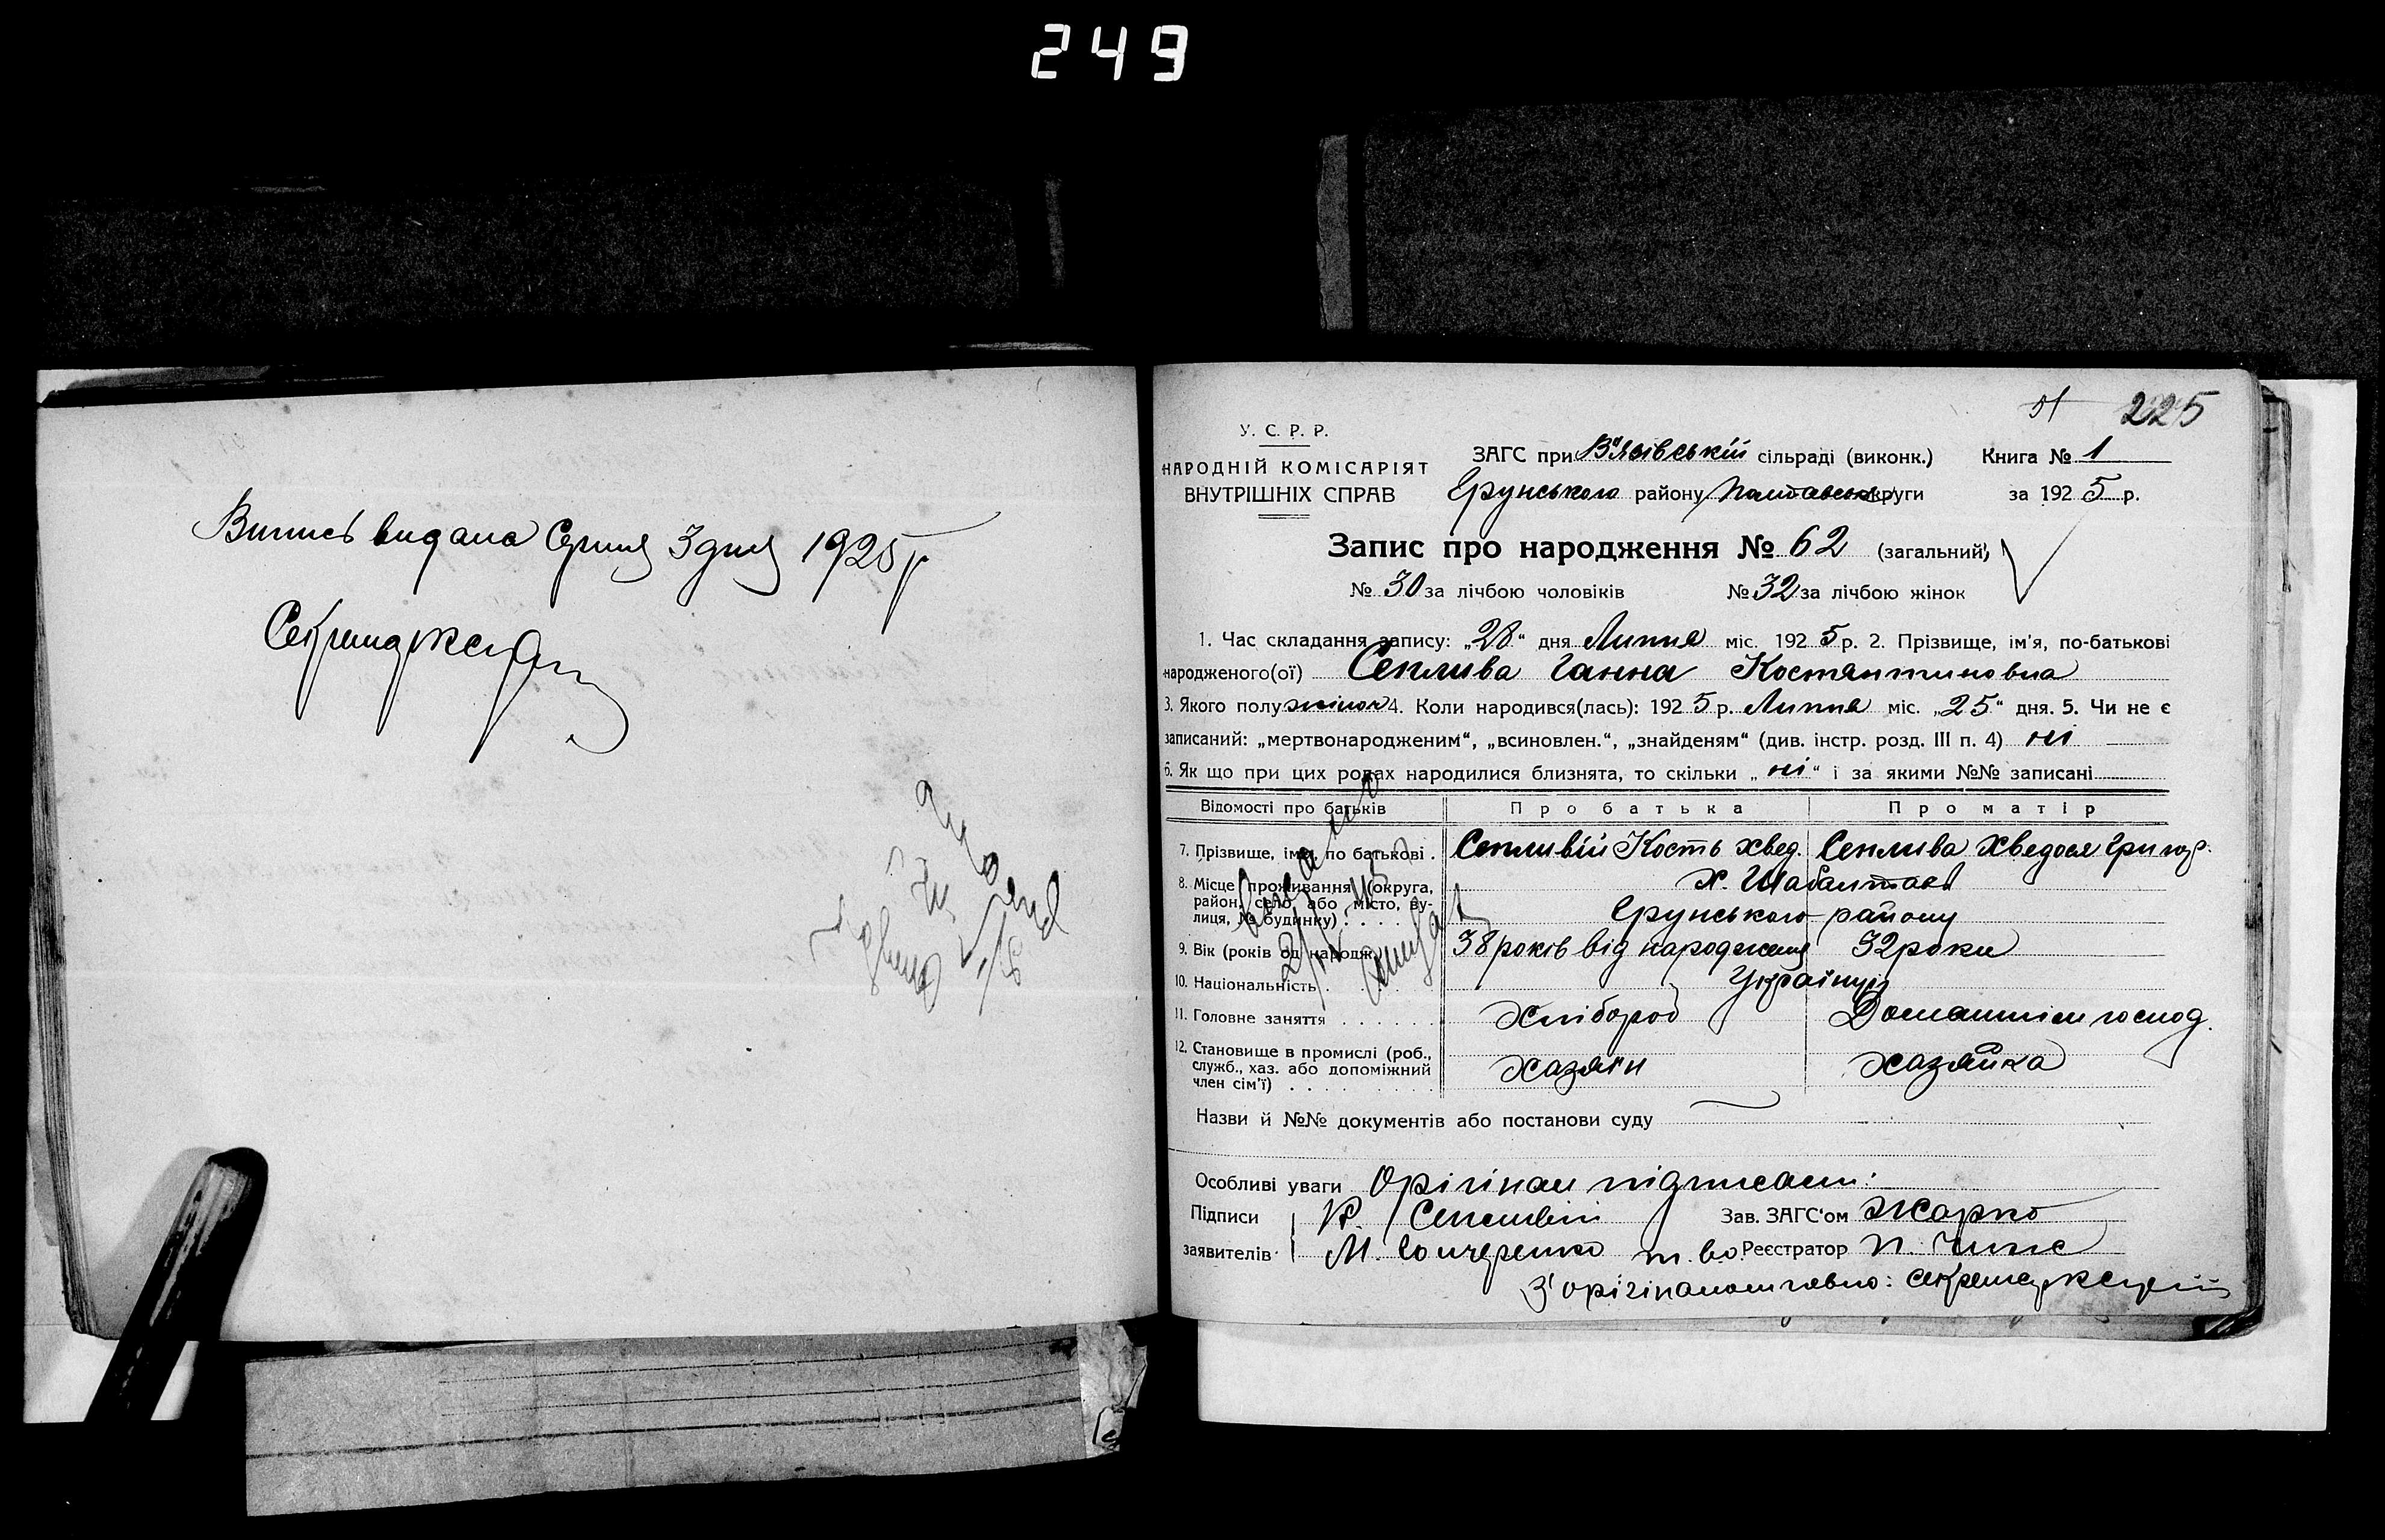 249
Випись видана Серпня 3 дня 1925 р
51 225
У. С. Р. Р.
НАРОДНІЙ КОМІСАРІЯТ
ВНУТРІШНІХ СПРАВ
ЗАГС при В'язівській сільраді (виконк.) Книга № 1
Грунського району Полтавської округи за 1925 р.
Запис про народження № 62 (загальний)
№ 30 за лічбою чоловіків № 32 за лічбою жінок
1. Час складання запису: „28“ дня Липня міс. 1925 р. 2. Прізвище, ім'я, по-батькові
народженого(ої) Сепліва Ганна Костянтиновна
3. Якого полу жіноч 4. Коли народився(лась): 1925 р. Липня міс. „25“ дня. 5. Чи не є
записаний: „мертвонародженим“, „всиновлен.“, „знайденям“ (див. інстр. розд. III п. 4) ні
6. Як що при цих родах народилися близнята, то скільки „ні“ і за якими №№ записані
Відомості про батьків Про батька Про матір
7. Прізвище, імя, по батькові . Сепливій Кость Хвед. Сеплива Хведося Григор.
8. Місце проживання (округа,
район, село або місто, ву-
лиця, № будинку) . . . .
Х. Шабалтаєв
Грунського району
9. Вік (років од народж. 38 років від народження 32 роки
10. Національність . Українці
11. Головне заняття . . . . . . Хлібороб Домашнім господ.
12. Становище в промислі (роб.,
служб., хаз. або допоміжний
член сім'ї) . . . . .
Хазяїн Хазяйка
Назви й №№ документів або постанови суду
Особливі уваги Орігінал підписали:
Підписи К. Сепливий Зав. ЗАГС'ом Жарко
заявителів М. Гончаренко т. во Реєстратор П.
З орігіналом вірно: